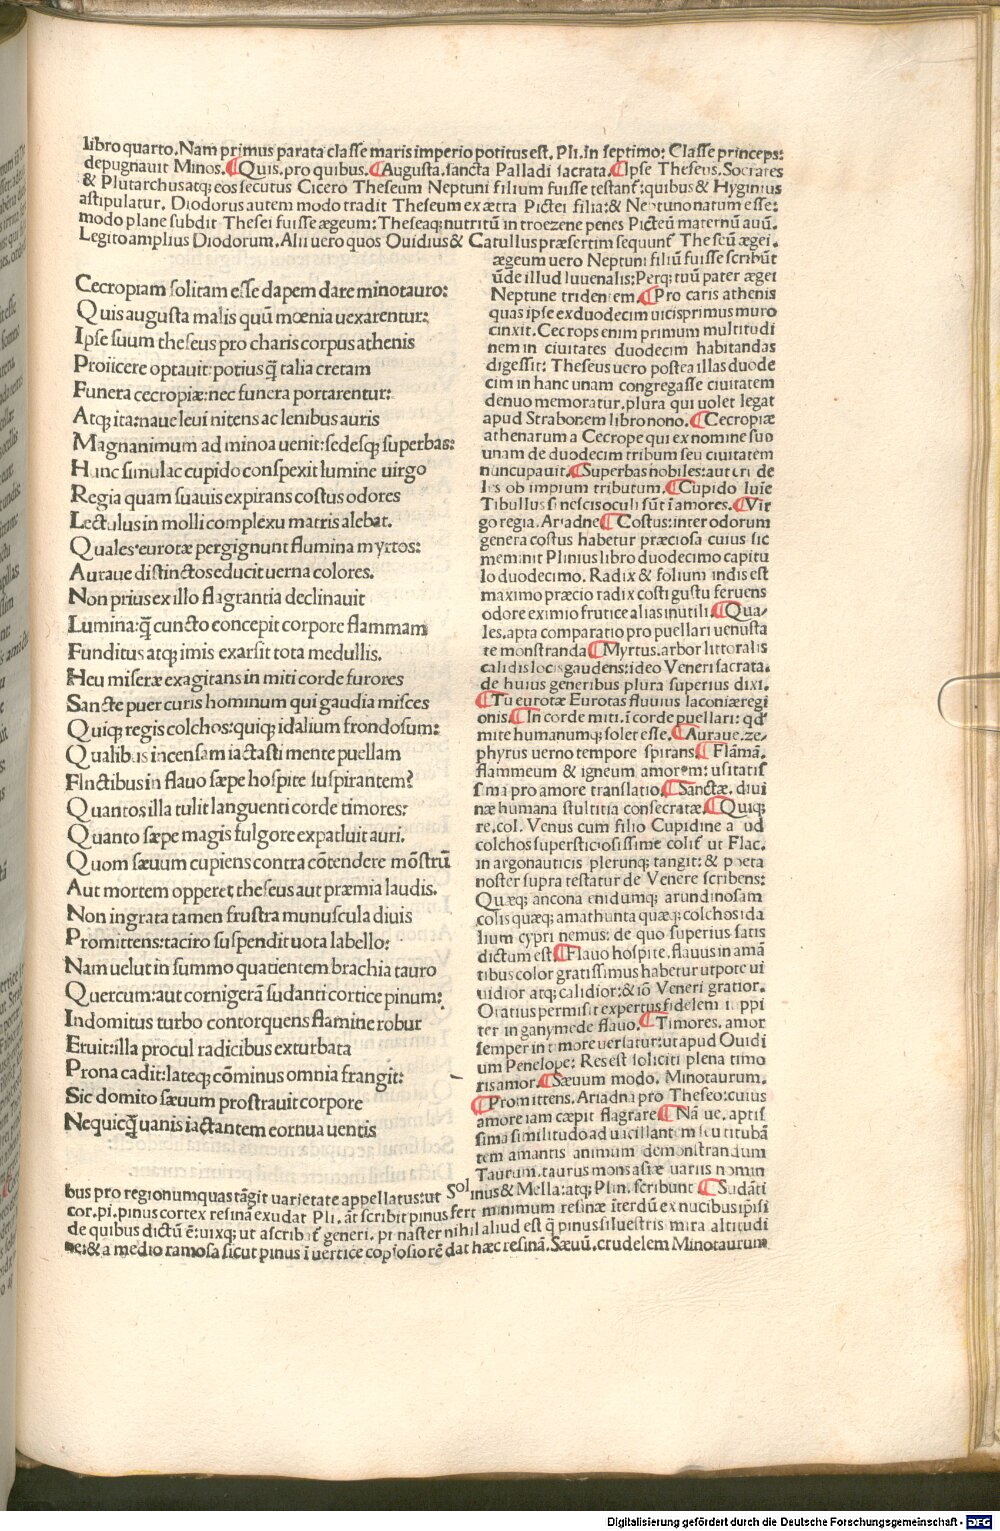 libro quarto. Nam primus parata classe maris imperio potitus est. Pli. in septimo: Classe princeps:
depugnauit Minos. ¶Quis. pro quibus. ¶Augusta. sancta Palladi sacrata. ¶Ipse Theseus. Socrates
& Plutarchus atq; eos secutus Cicero Theseum Neptuni filium fuisse testant: quibus & Hyginius
astipulatur. Diodorus autem modo tradit Theseum ex ætra Pictei filia: & Neptuno natum esse:
modo plane subdit Thesei fuisse ægeum: Theseaq; nutritū in troezene penes Picteū maternū auū.
Legito amplius Diodorum. Alii uero quos Ouidius & Catullus præsertim sequunt Theseū ægei.
Cecropiam solitam esse dapem dare minotauro:
Quis augusta malis quū mœnia uexarentur:
Ipse suum theseus pro charis corpus athenis
Proiicere optauit: potius q̄ talia cretam
Funera cecropiæ: nec funera portarentur:
Atq; ita: naue leui nitens ac lenibus auris
Magnanimum ad minoa uenit: sedesq; superbas:
Hunc simulac cupido conspexit lumine uirgo
Regia quam suauis expirans costus odores
Lectulus in molli complexu matris alebat.
Quales eurotæ pergignunt flumina myrtos:
Auraue distinctos educit uerna colores.
Non prius ex illo flagrantia declinauit
Lumina: q̄ cuncto concepit corpore flammam
Funditus atq; imis exarsit tota medullis.
Heu misere exagitans in miti corde furores
Sancte puer curis hominum qui gaudia misces
Quiq; regis colchos: quiq; idalium frondosum:
Qualibus incensam iactasti mente puellam
Fluctibus in flauo sæpe hospite suspirantem?
Quantos illa tulit languenti corde timores:
Quanto sæpe magis fulgore expalluit auri.
Quom sæuum cupiens contra cōtendere mōstrū
Aut mortem opperet theseus aut præmia laudis.
Non ingrata tamen frustra munuscula diuis
Promittens: tacito suspendit uota labello:
Nam uelut in summo quatientem brachia tauro
Quercum: aut cornigerā sudanti cortice pinum:
Indomitus turbo contorquens flamine robur
Eruit: illa procul radicibus exturbata
Prona cadit: lateq; cōminus omnia frangit:
Sic domito sæuum prostrauit corpore
Nequicq̄ uanis iactantem cornua uentis
ægeum uero Neptuni filiū fuisse scribūt
ūde illud Iuuenalis: Perq; tuū pater ægei
Neptune tridentem. ¶Pro caris athenis
quas ipse ex duodecim uicis primus muro
cinxit. Cecrops enim primum multitudi
nem in ciuitates duodecim habitandas
digessit: Theseus uero postea illas duode
cim in hanc unam congregasse ciuitatem
denuo memoratur. plura qui uolet legat
apud Strabonem libro nono. ¶Cecropiæ
athenarum a Cecrope qui ex nomine suo
unam de duodecim tribum seu ciuitatem
nuncupauit. ¶Superbas nobiles: aut cru de
les ob impium tributum. ¶Cupido luie
Tibullus si nescis oculi sūt ī amores. ¶Vir
go regia. Ariadne ¶Costus: inter odorum
genera costus habetur præciosa cuius sic
meminit Plinius libro duodecimo capitu
lo duodecimo. Radix & folium indis est
maximo præcio radix costi gustu feruens
odore eximio frutice alias inutili. ¶Qua/
les. apta comparatio pro puellari uenusta
te monstranda ¶Myrtus. arbor littoralis
calidis locis gaudens: ideo Veneri sacrata.
de huius generibus plura superius dixi.
¶Tu eurotæ Eurotas fluuius laconiæ regi
onis. ¶In corde miti. ī corde puellari: qđ
mite humanumq; solet esse. ¶Auraue. ze/
phyrus uerno tempore spirans. ¶Flāmā.
flammeum & igneum amorem: usitatis
sima pro amore translatio. ¶Sanctæ. diui
næ humana stultitia consecratæ. ¶Quiq;
re. col. Venus cum filio Cupidine apud
colchos superstitiosissime colit ut Flac.
in argonauticis plerunq; tangit: & poeta
noster supra testatur de Venere scribens:
Quæq; ancona cnidumq; arundinosam
colis quæq; amathunta quæq; colchos ida
lium cypri nemus: de quo superius satis
dictum est. ¶Flauo hospite. flauus in amā
tibus color gratissimus habetur utpote ui
uidior atq; calidior: & iō Veneri gratior.
Oratius permisit expertus fidelem iuppi
ter in ganymede flauo. ¶Timores. amor
semper in timore uersatur: ut apud Ouidi
um Penelope: Res est soliciti plena timo
ris amor. ¶Sæuum modo. Minotaurum.
¶Promittens. Ariadna pro Theseo: cuius
amore iam cæpit flagrare ¶Nā ue. aptis
sima similitudo ad uacillantem seu titubā
tem amantis animum demonstrandum
Taurum. taurus mons asiæ uariis nomin
bus pro regionum quas tāgit uarietate appellatus: ut Solinus & Mella: atq; Plin. scribunt ¶Sudāti
cor. pi. pinus cortex resinā exudat Pli. āt scribit pinus fert minimum resinæ iterdū ex nucibus ipsi
de quibus dictū ē: uixq; ut ascribat generi. pinaster nihil aliud est q̄ pinus siluestris mira altitudi
ne: & a medio ramosa sicut pinus ī uertice copiosiorē dat hæc resinā. Sæuū. crudelem Minotaurum
Digitalisierung gefördert durch die Deutsche Forschungsgemeinschaft - DFG